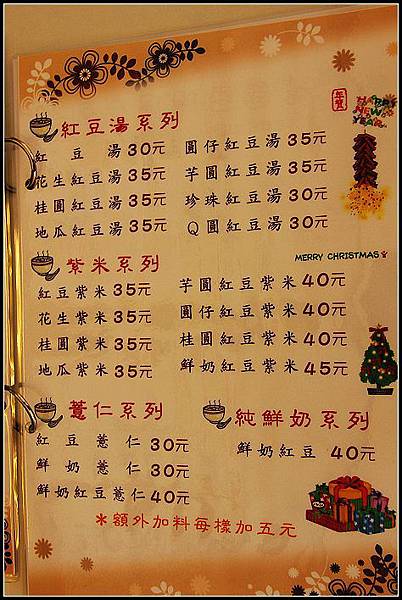 年賀
HAPPY
NEW
YEAR
紅豆湯系列
紅豆湯30元
圓仔紅豆湯35元
花生紅豆湯35元
芋圓紅豆湯35元
桂圓紅豆湯35元
珍珠紅豆湯30元
地瓜紅豆湯35元
Q圓紅豆湯30元
MERRY CHRISTMAS
紫米系列
紅豆紫米35元
芋圓紅豆紫米40元
花生紫米35元
圓仔紅豆紫米40元
桂圓紫米35元
桂圓紅豆紫米40元
地瓜紫米35元
鮮奶紅豆紫米45元
薏仁系列
純鮮奶系列
紅豆薏仁30元
鮮奶紅豆40元
鮮奶薏仁30元
鮮奶紅豆薏仁40元
*額外加料每樣加五元